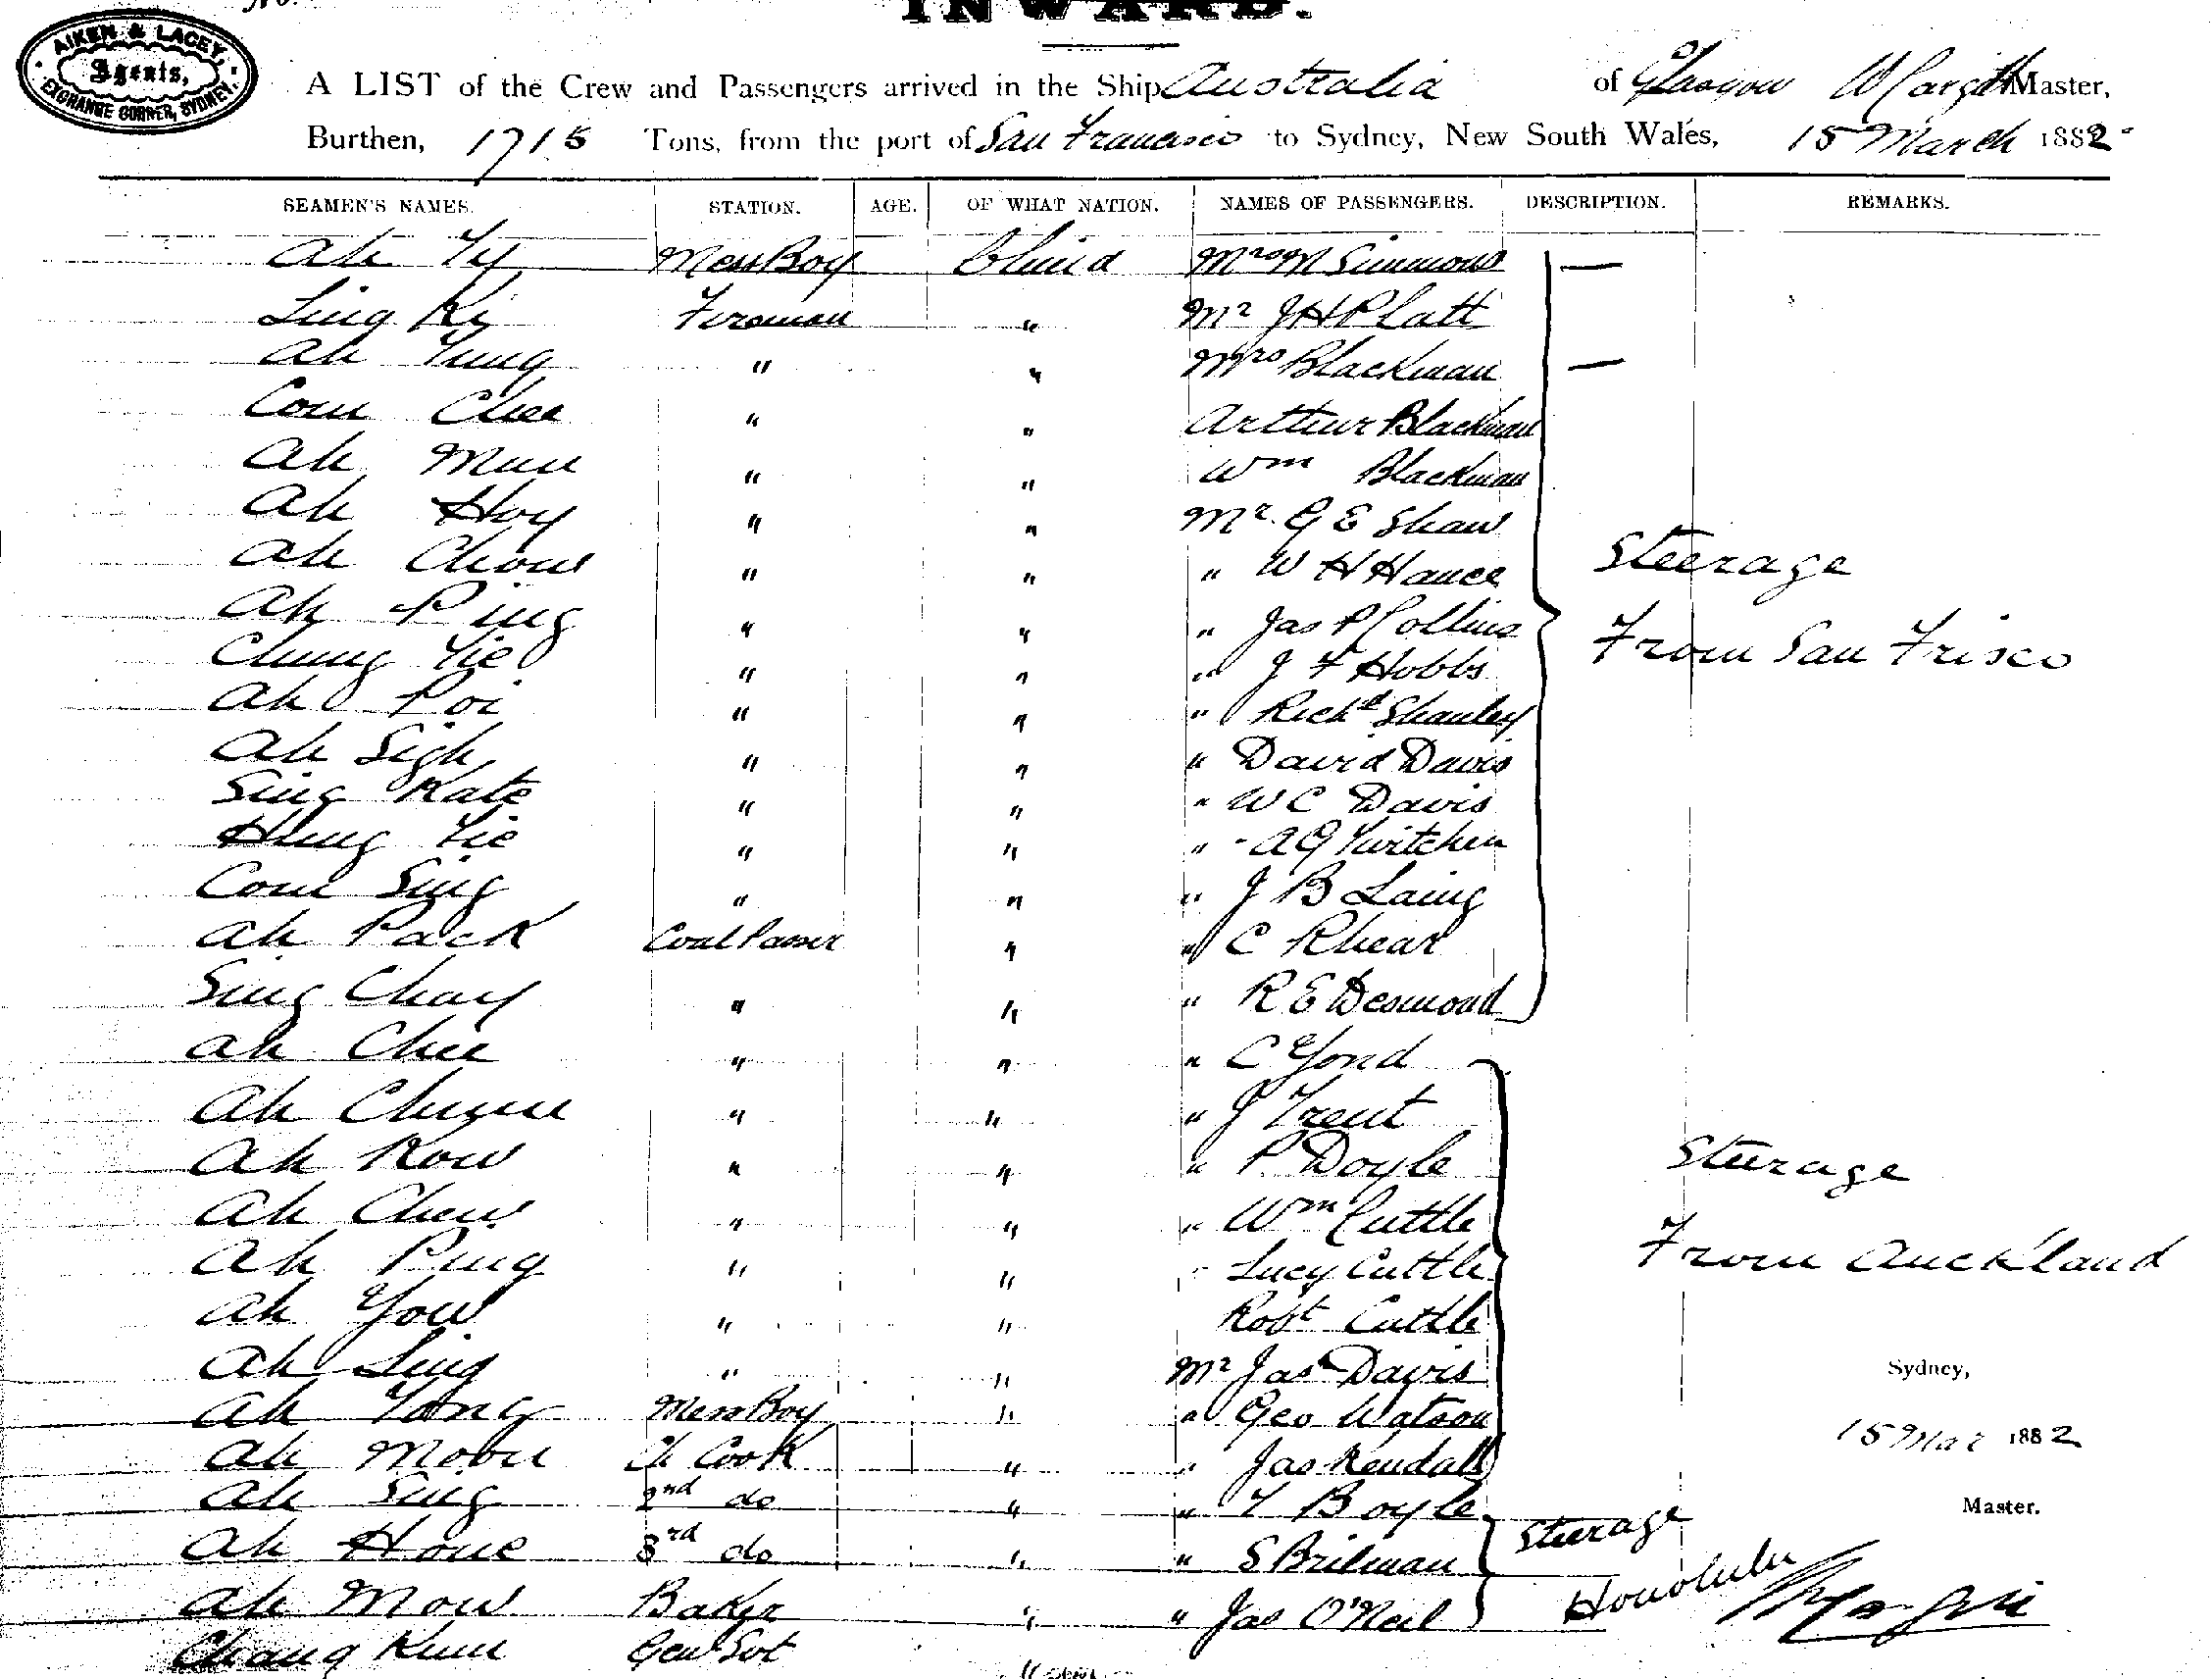 No.
INWARD.
AIKEN & LACEY,
Agents,
EXCHANGE CORNER, SYDNEY.
A LIST of the Crew and Passengers arrived in the Ship Australia of Glasgow Master,
Burthen, 1715 Tons, from the port of San Francisco to Sydney, New South Wales, 15 March 1882
SEAMEN'S NAMES. STATION. AGE. OF WHAT NATION. NAMES OF PASSENGERS. DESCRIPTION. REMARKS.
Ah Ty Mess Boy China Mrs M Simmons —
Ling Ky Fireman " Mr J H Platt
Ah Tung " " Mrs Blackman —
Com Chee " " Arthur Blackman
Ah Mun " " Wm Blackman
Ah Hoy " " Mr G E Shaw
Ah Chow " " " W H Hance Steerage
Ah Ping " " " Jas P Collins
Chung Tie " " " J F Hobbs From San Frisco
Ah Poi " " " Richd Shanley
Ah Sigh " " " David Davis
Sing Kate " " " W C Davis
Hung Tie " " " A G Twitchen
Com Sing " " " J B Laing
Ah Pack Coal Passer " " C Rhear
Sing Chay " " " R E Desmond
Ah Chee " " " C Yond
Ah " " " J Trent
Ah Kow " " " P Doyle Steerage
Ah Chew " " " Wm Cuttle
Ah Ping " " " Lucy Cuttle From Auckland
Ah You " " Robt Cuttle
Ah Ling " " Mr Jas Davis Sydney,
Ah Tong Mess Boy " " Geo Watson
Ah Moon Ch Cook " " Jas Kendall 15 Mar 1882
Ah Sing 2nd do " " T Boyle Master.
Ah Hone 3rd do " " S Brilman Steerage
Ah Mow Baker " " Jas O'Neil Honolulu
Chang Kum Genl Svt "